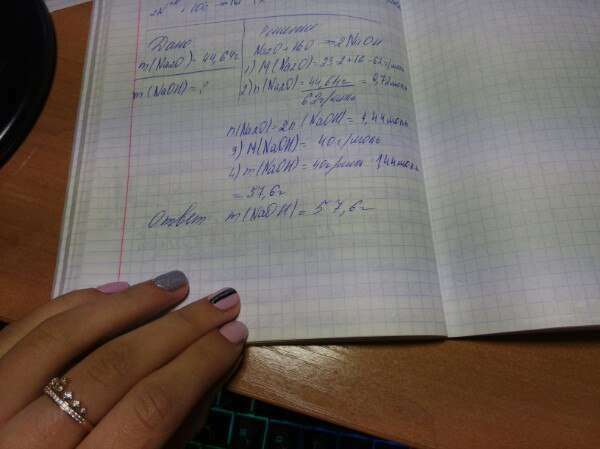 Дано
m(Na2O)=44,64г
m(NaOH)=?
Решение
Na2O+H2O → 2NaOH
1) M(Na2O)=23·2+16=62г/моль
2) n(Na2O)=44,64г/62г/моль=0,72моль
n(Na2O)=2n(NaOH)=1,44моль
3) M(NaOH)=40г/моль
4) m(NaOH)=40г/моль·1,44моль
=57,6г
Ответ m(NaOH)=57,6г